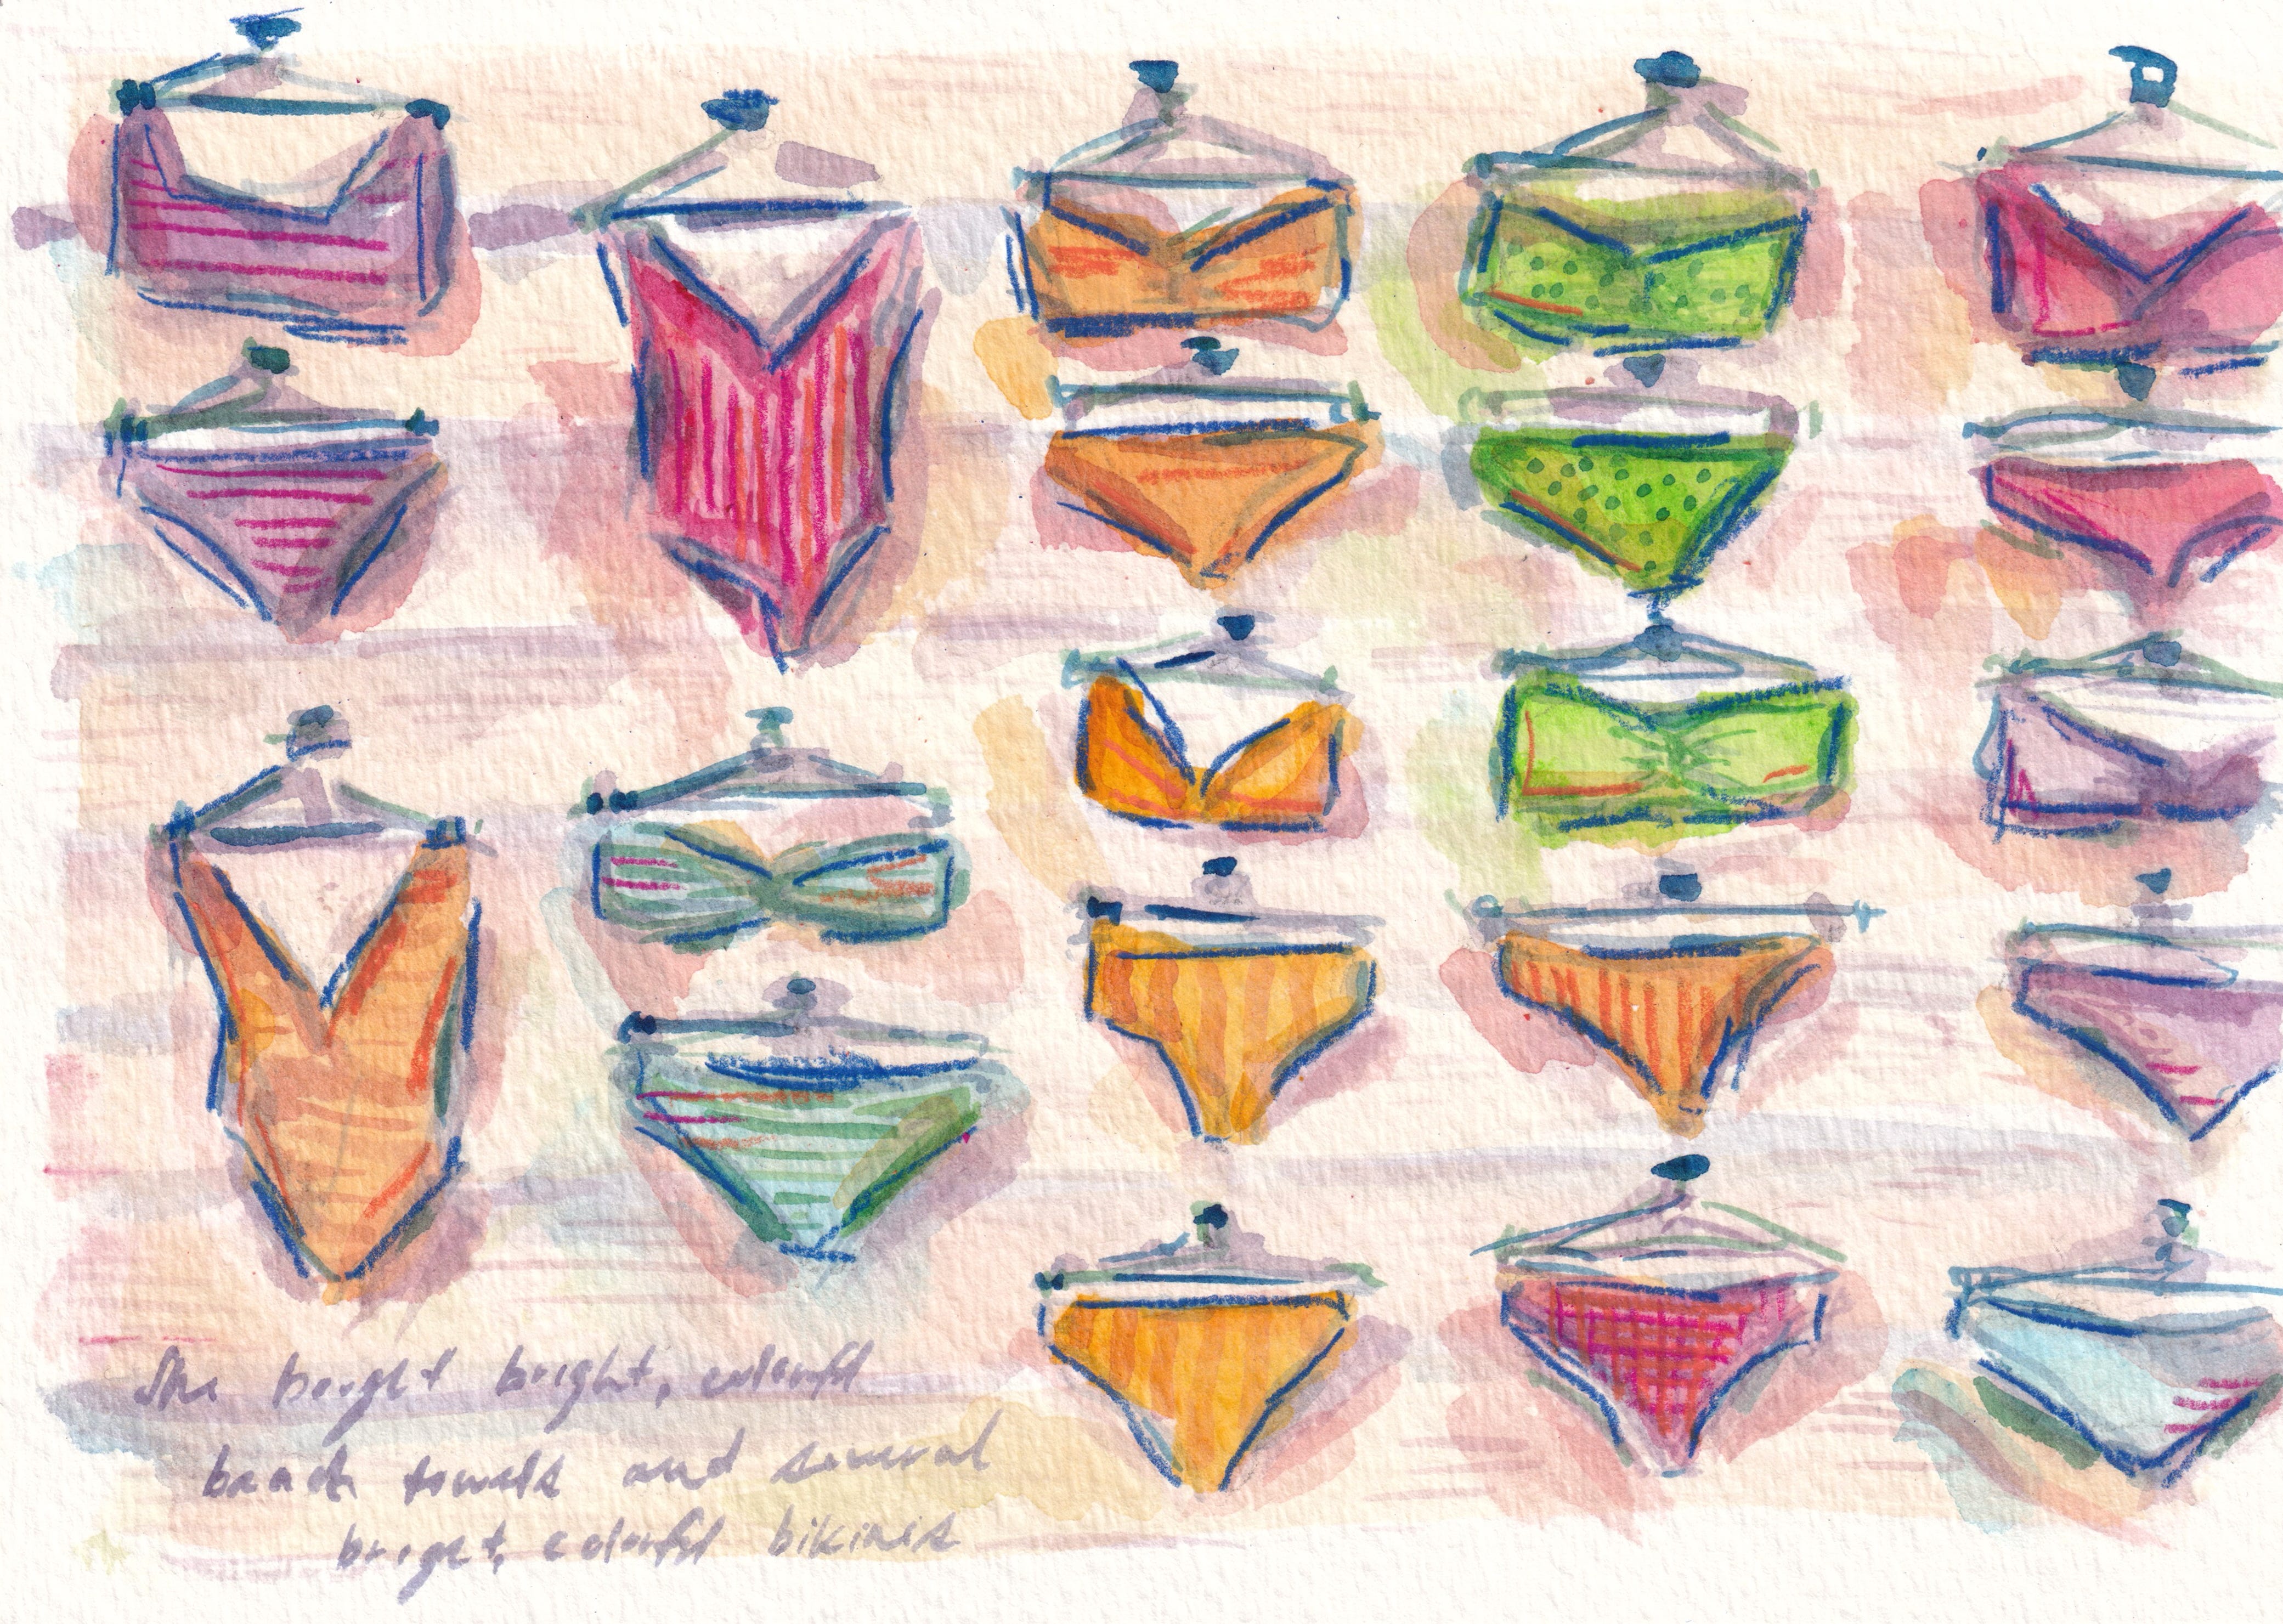 She bought bright, colorful
beach towels and several
bright, colorful bikinis